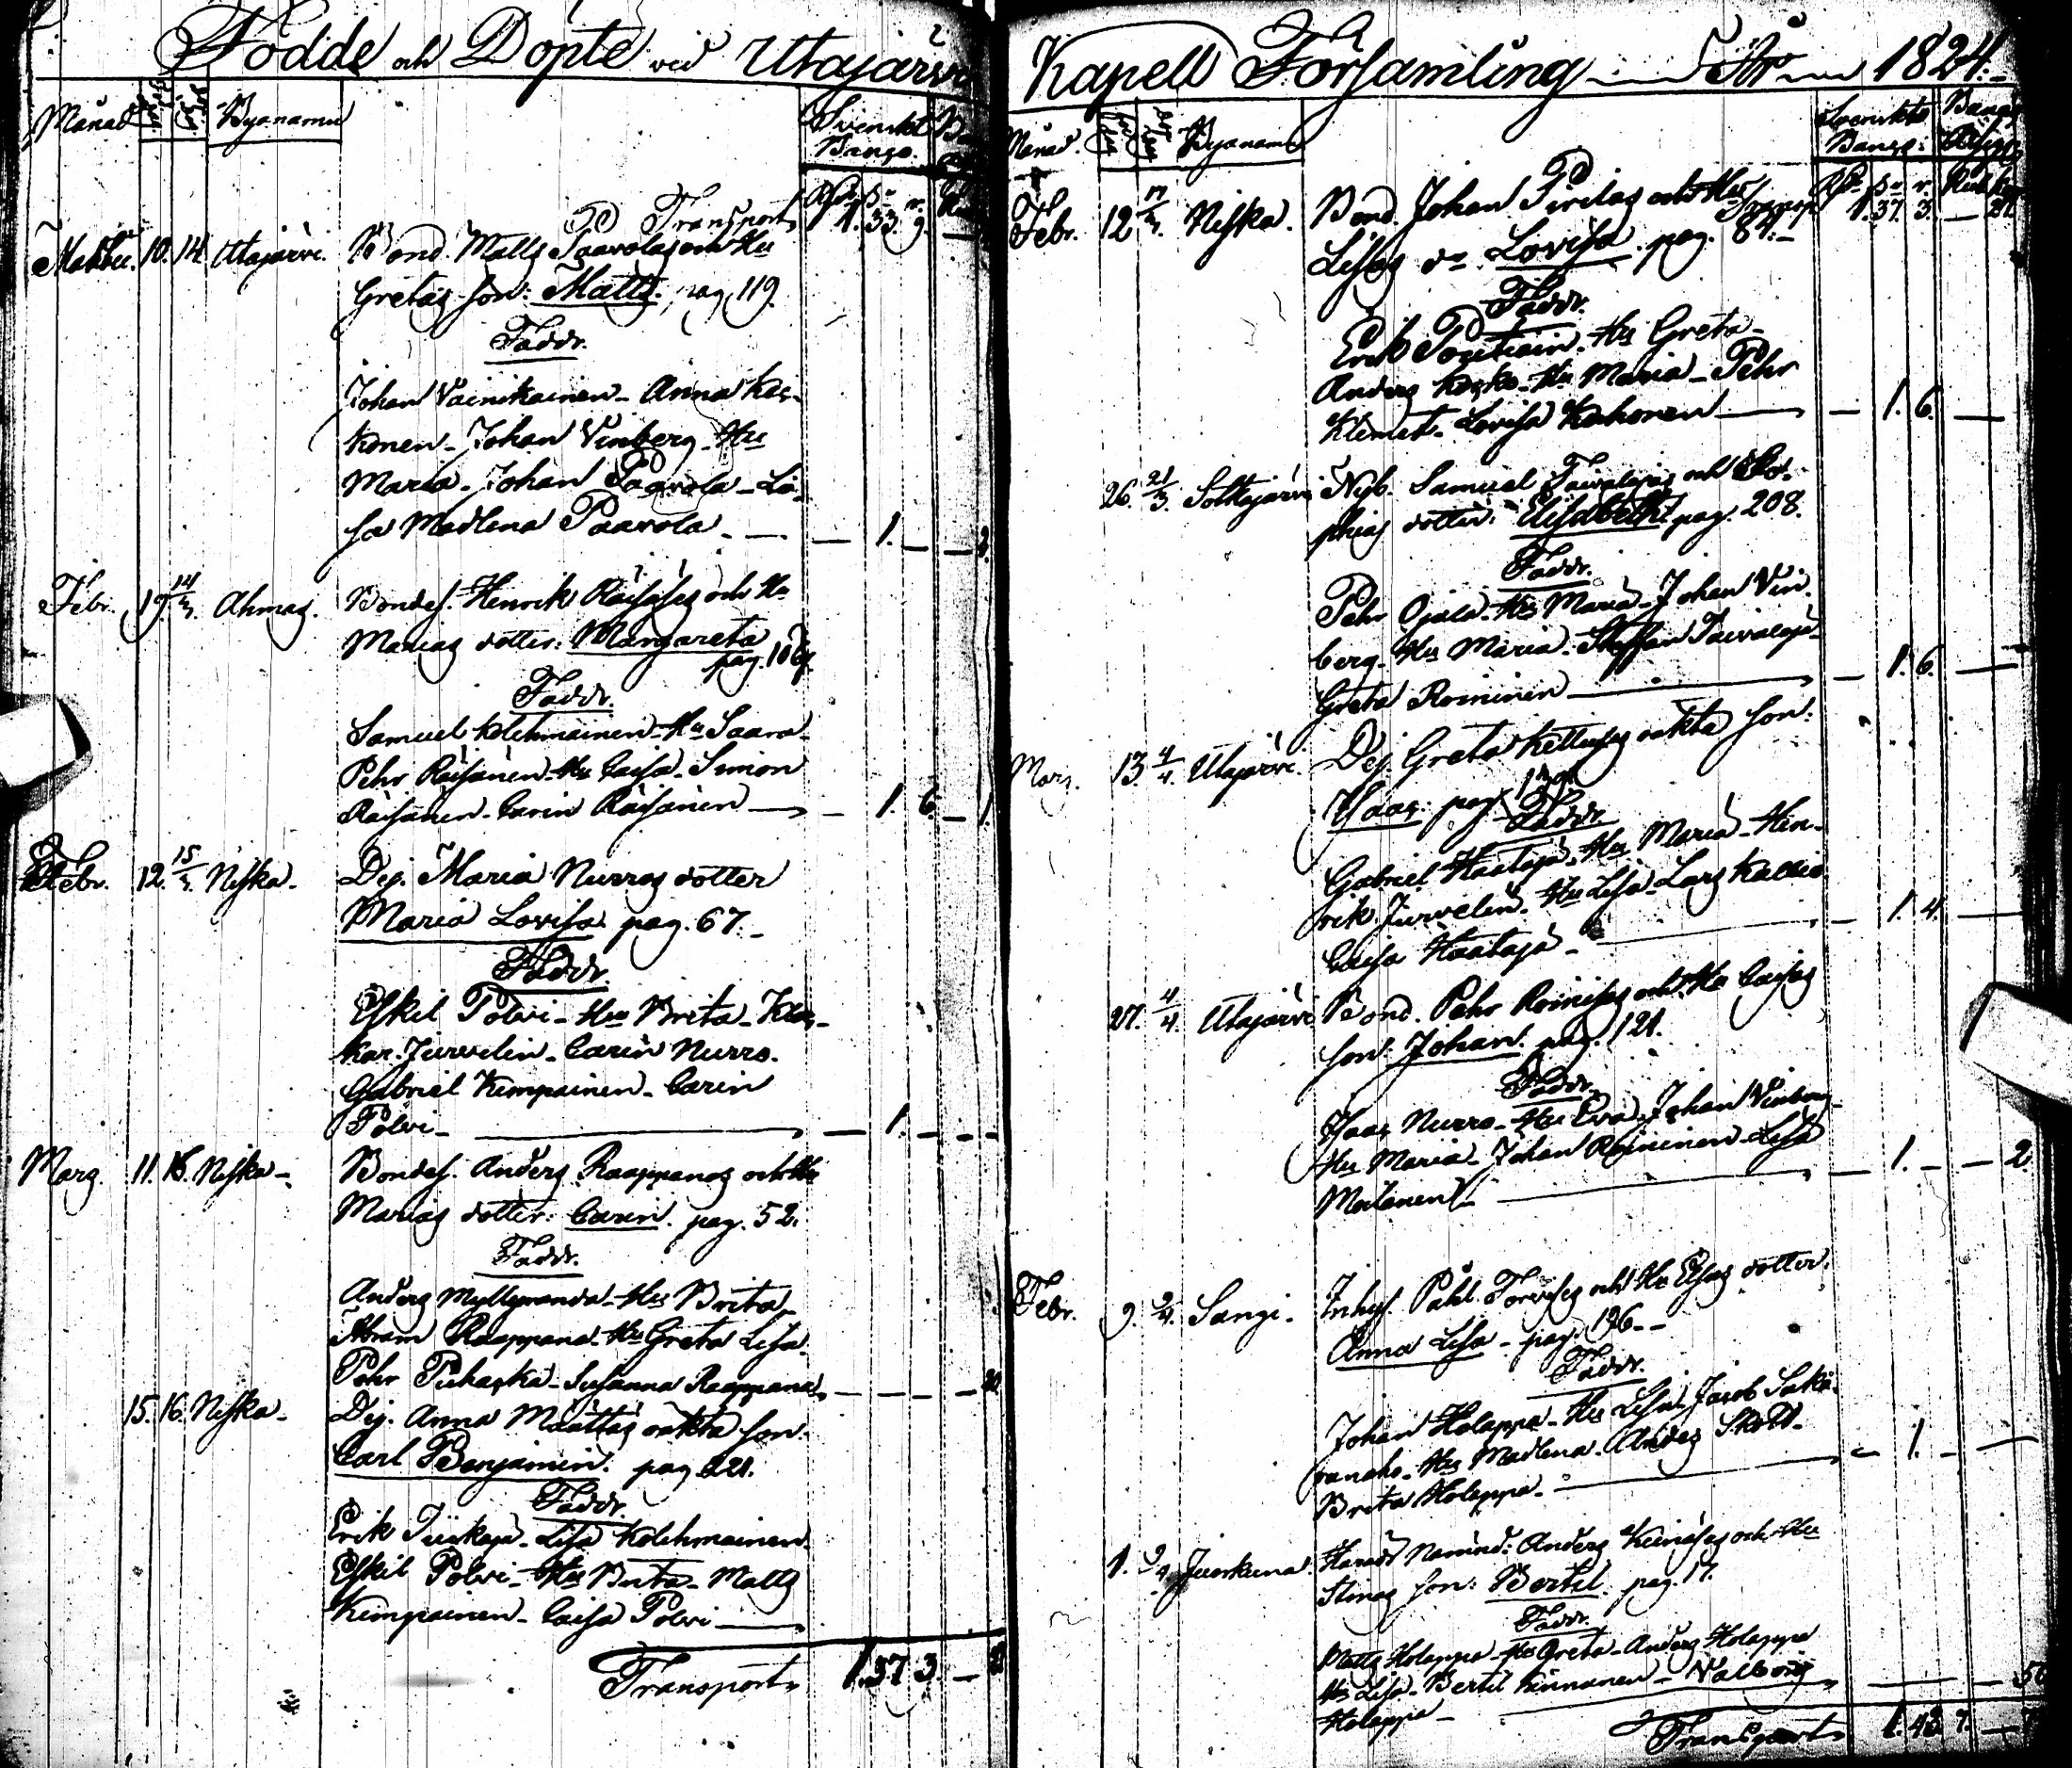 Födde och Döpte vid Utajärvi
Månad Byanamn Svenskt
Banco.
Transport 1. 33. 9.
10. 14. Utajärvi. Bond. Matts Paavolas och Hu
Gretas son: Matts. pag. 119.
Faddr.
Johan Väinikainen - Anna Kes-
konen - Johan Vinberg - Hu
Maria - Johan Paavola - Li-
sa Madlena Paavola - 1.
Febr. 19. 14/3. Ahmas. Bondes. Henrik Räisäses och Hu
Marias dotter: Margareta
pag.
Faddr.
Samuel Kolehmainen - Hu Saara -
Pehr Räisänen - Hu Caisa - Simon
Räisänen - Carin Räisänen - 1. 6.
Febr. 12. 15/3. Niska - Pig. Maria Nurros dotter
Maria Lovisa pag. 67. -
Faddr.
Eskil Polvi - Hu Brita -
Jurvelin - Carin Nurro.
Gabriel Kempainen - Carin
Polvi - 1.
Mars. 11. 15. Niska - Bondes. Anders Raappanas och Hu
Marias dotter: Carin. pag. 52.
Faddr.
Anders Myllyranda - Hu Brita -
Abram Raappana - Hu Greta Lisa -
Pehr Puhakka - Susanna Raappana
15. 16. Niska - Pig. Anna Määttäs oäkta son:
Carl Benjamin. pag. 221.
Faddr.
Erik Tuikaja - Lisa Kolehmainen
Eskil Polvi - Hu Brita - Matts
Kempainen - Caisa Polvi
Transport 1. 37. 3.
Kapell Församling År 1824.
Månad. Byanamn Svenskt
Banco:
Transp. 1. 37. 3.
Febr. 12 17/3. Niska. Bond. Johan Pirilas och Hu
Lisas dr Lovisa. pag. 87. -
Faddr.
Erik Poutiain. Hu Greta -
Anders Kesko - Hu Maria - Pehr
Klemet - Lovisa Kahonen 1. 6.
26. 21/3. Sotkajärvi Nyb. Samuel Taivalojas och So-
phias dotter: Elisabetha pag. 208.
Faddr.
Pehr Ojala - Hu Maria - Johan Vin-
berg - Hu Maria - Steffan Taivaloja
Greta Roininen 1. 6.
Mars. 13. 4/4 Utajärvi. Pig. Greta oäkta son:
Isaac pag.
Faddr.
Gabriel Haataja. Hu Maria - Hen-
rik Jurvelin. Hu Lisa - Lars Kallio
Caisa Haataja - 1. 4.
27. 4/4. Utajärvi Bond. Pehr Roinises och Hu Caisas
son: Johan. pag. 121.
Faddr.
Isaac Nurro - Hu Eva - Johan Vinberg -
Hu Maria - Johan Roininen - Lisa
1. 2.
Febr. 9. 9/4. Sangi - Inhys. Påhl Torvises och Hu Elsas dotter:
Anna Lisa - pag. 196 - -
Faddr.
Johan Holappa - Hu Lisa - Jacob Saka-
ranaho - Hu Madlena - Anders Skott -
Brita Holappa - 1.
1. 9/4 Juorkuna. Härads Nämnd: Anders Kinnases och Hu
Stinas son: Bertil. pag. 17.
Faddr.
Matts Holappa - Hu Greta - Anders Holappa
Hu Lisa - Bertil Kinnanen - Valborg
Holappa -
Transport 1. 43. 7.